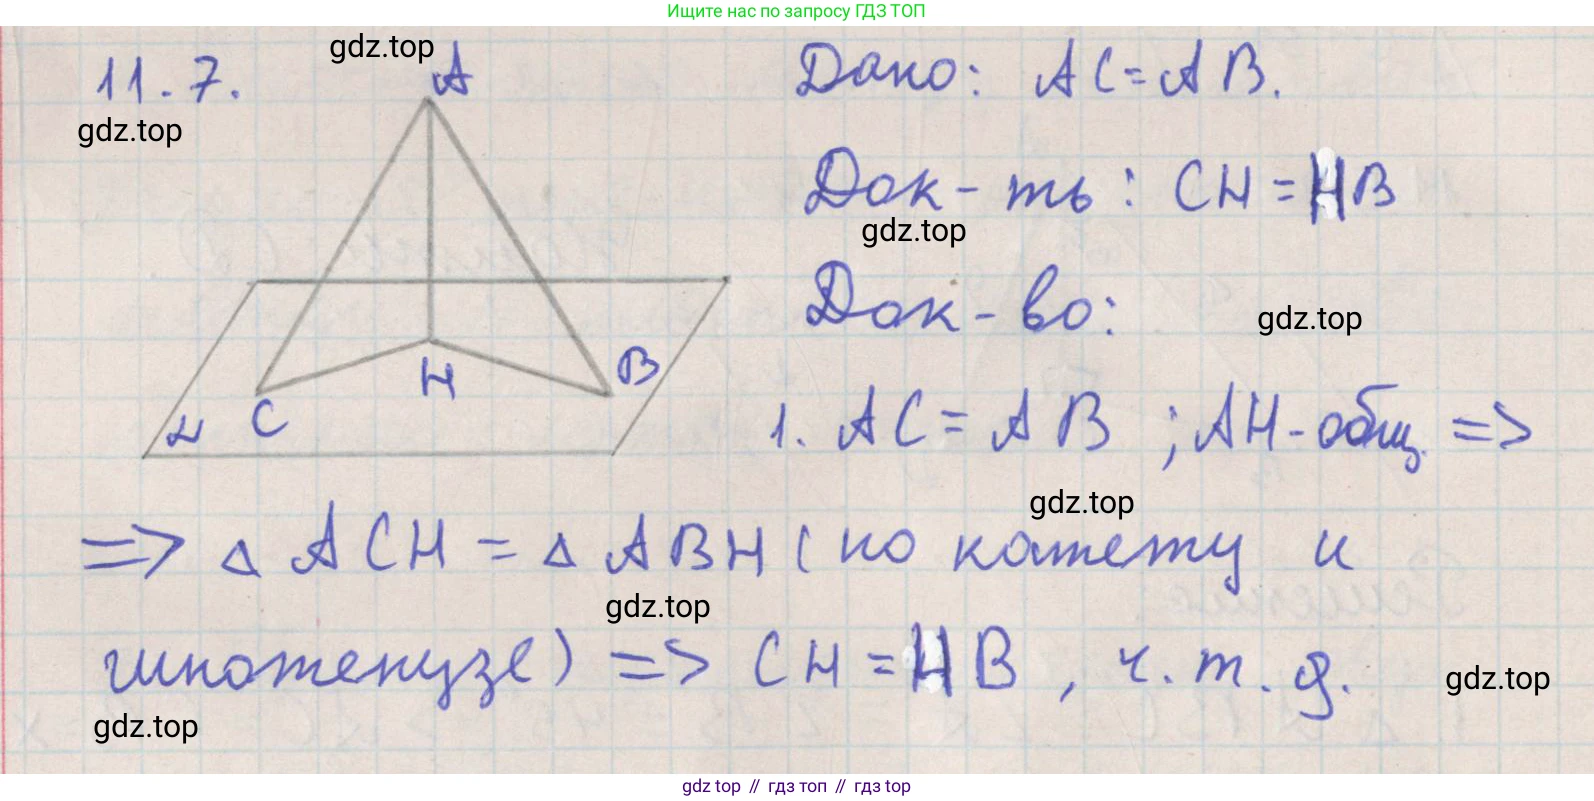 Ищите нас по запросу ГДЗ ТОП
11.7.
gdz.top
A
Дано: AC=AB.
gdz.top
Док-ть: CH=HB
gdz.top
Док-во:
gdz.top
H
B
C
α
1. AC=AB ; AH-общ. =>
gdz.top
=> △ ACH = △ ABH (по катету и
gdz.top
гипотенузе) => CH=HB, ч.т.д.
gdz.top
gdz.top
gdz top // гдз топ // gdz top